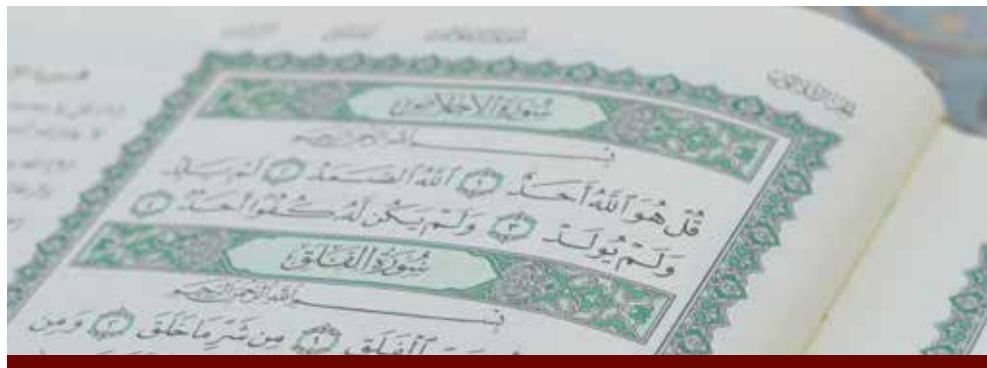 سُورَةُ الإِخْلَاصِ
بِسْمِ ٱللَّهِ ٱلرَّحْمَٰنِ ٱلرَّحِيمِ
قُلْ هُوَ ٱللَّهُ أَحَدٌ ١ ٱللَّهُ ٱلصَّمَدُ ٢ لَمْ يَلِدْ
وَلَمْ يُولَدْ ٣ وَلَمْ يَكُن لَّهُۥ كُفُوًا أَحَدٌۢ ٤
سُورَةُ الفَلَقِ
بِسْمِ ٱللَّهِ ٱلرَّحْمَٰنِ ٱلرَّحِيمِ
ٱلْفَلَقِ ١ مِن شَرِّ مَا خَلَقَ ٢ وَمِن